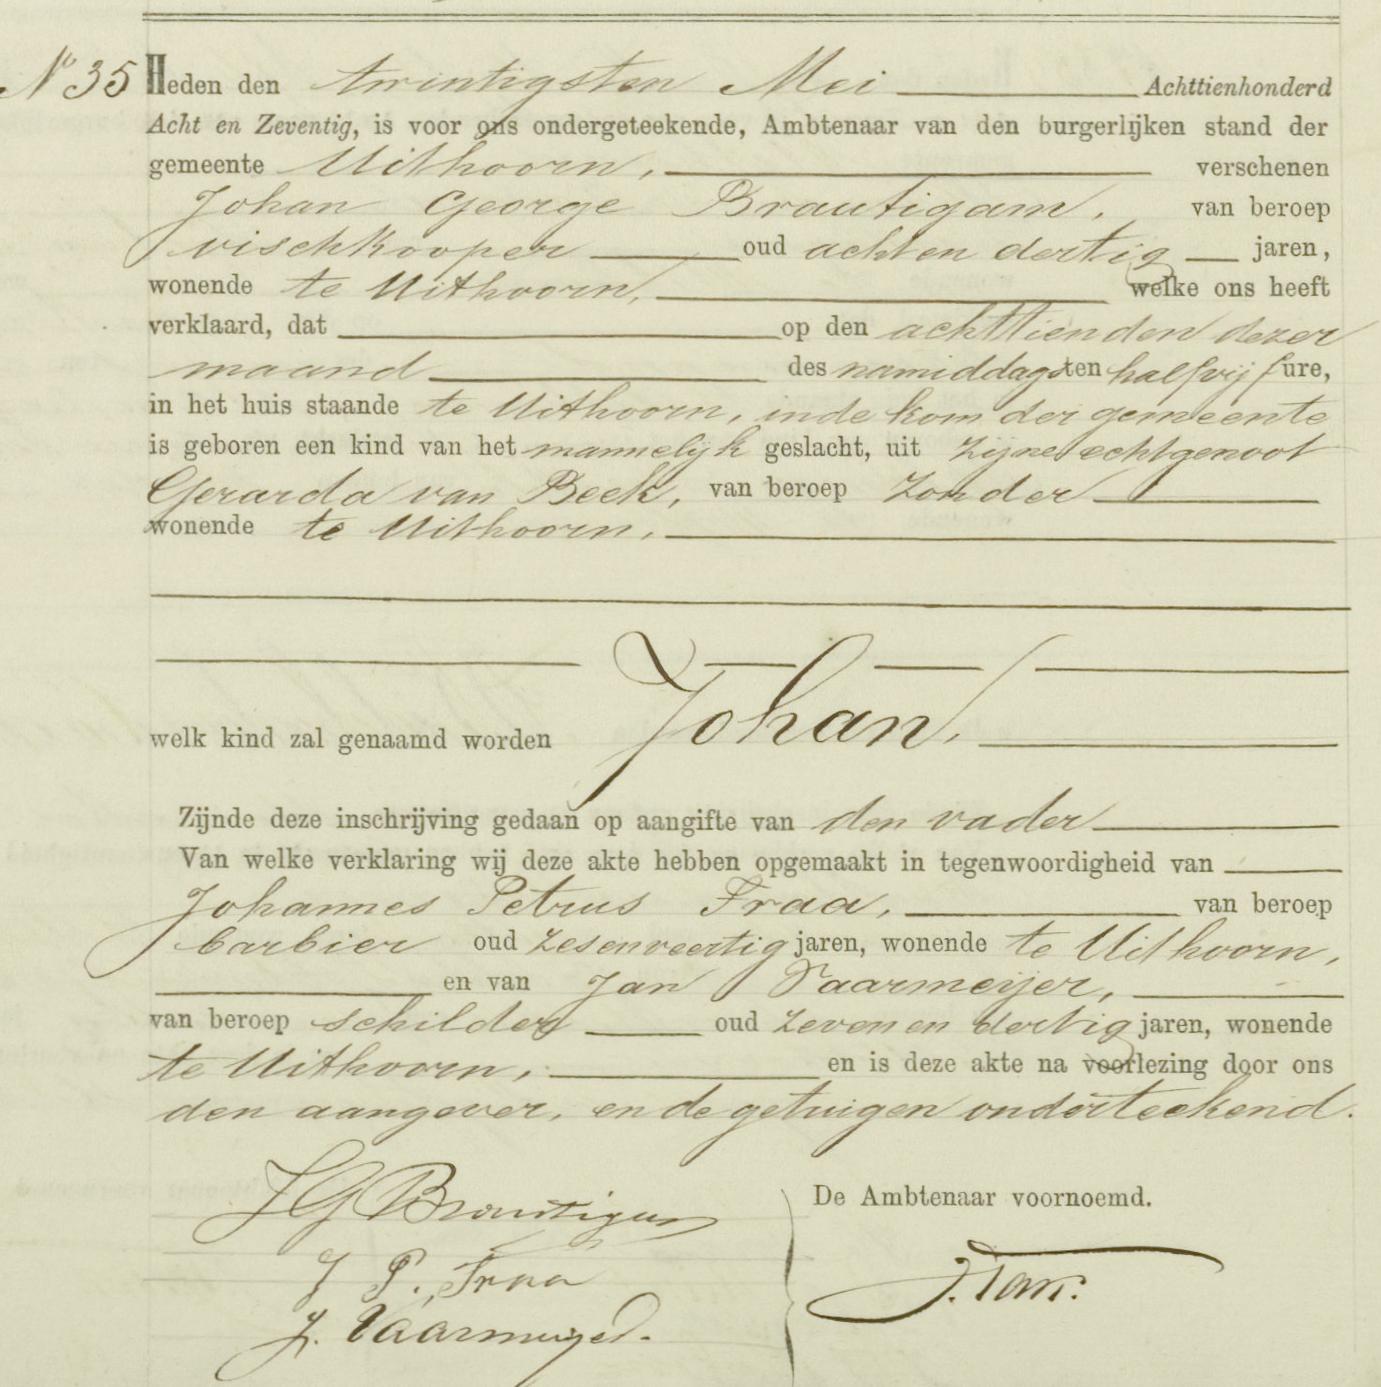 No 35 Heden den twintigsten Mei Achttienhonderd
Acht en Zeventig, is voor ons ondergeteekende, Ambtenaar van den burgerlijken stand der
gemeente Uithoorn, verschenen
Johan George Brautigam, van beroep
vischkooper oud achten dertig jaren,
wonende te Uithoorn, welke ons heeft
verklaard, dat op den achttienden dezer
maand des namiddags ten half vijf ure,
in het huis staande te Uithoorn, in de kom der gemeente
is geboren een kind van het mannelijk geslacht, uit zijne echtgenoot
Gerarda van Beek, van beroep zonder
wonende te Uithoorn.
welk kind zal genaamd worden Johan,
Zijnde deze inschrijving gedaan op aangifte van den vader
Van welke verklaring wij deze akte hebben opgemaakt in tegenwoordigheid van
Johannes Petrus Fraa, van beroep
barbier oud zesenveertig jaren, wonende te Uithoorn,
en van Jan Vaarmeijer,
van beroep schilder oud zeven en dertig jaren, wonende
te Uithoorn, en is deze akte na voorlezing door ons
den aangever, en de getuigen onderteekend.
J G Brautigam
De Ambtenaar voornoemd.
J P. Fraa
J. Vaarmeijer.